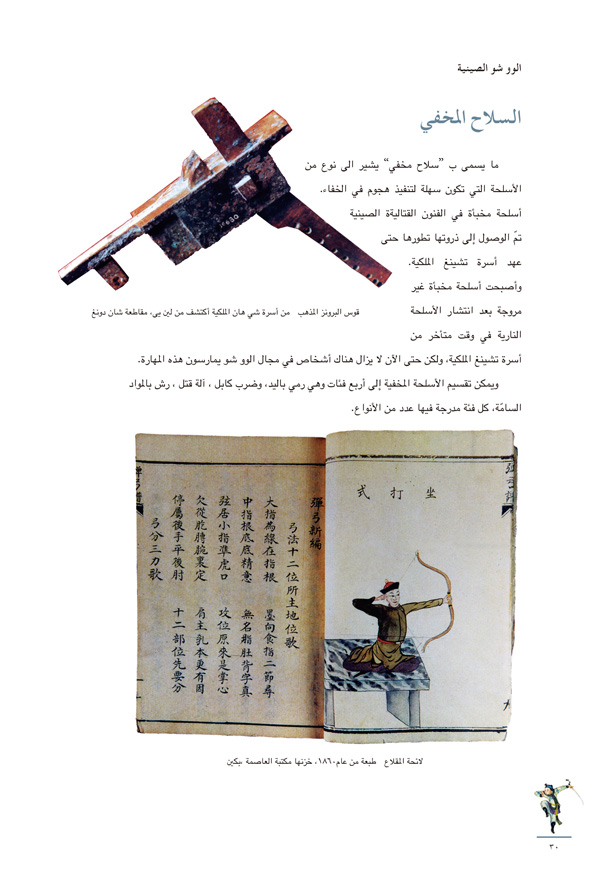 الوو شو الصينية
السلاح المخفي
ما يسمى ب ”سلاح مخفي“ يشير الى نوع من
الأسلحة التي تكون سهلة لتنفيذ هجوم في الخفاء.
أسلحة مخبأة في الفنون القتاليةة الصينية
تمّ الوصول إلى ذروتها تطورها حتى
عهد أسرة تشينغ الملكية.
وأصبحت أسلحة مخبأة غير
مروجة بعد انتشار الأسلحة
النارية في وقت متأخر من
أسرة تشينغ الملكية، ولكن حتى الآن لا يزال هناك أشخاص في مجال الوو شو يمارسون هذه المهارة.
ويمكن تقسيم الأسلحة المخفية إلى أربع فئات وهي رمي باليد، وضرب كابل ، آلة قتل ، رش بالمواد
السامّة، كل فئة مدرجة فيها عدد من الأنواع.
قوس البرونز المذهب من أسرة شي هان الملكية أكتشف من لين يي، مقاطعة شان دونغ
坐打式
彈弓新編
弓法十二位所主地位歌
大指為線在指根 墨向食指二節尋
中指根底底精意 無名指肚背字真
弦居小指準虎口 攻位原來是掌心
欠從肐膊腕裏定 肩主乳本更有因
停屬後手平後肘 十二部位先要分
弓分三力歌
لائحة المقلاع طبعة من عام١٨٦٠، خزنها مكتبة العاصمة ،بكين
٣٠